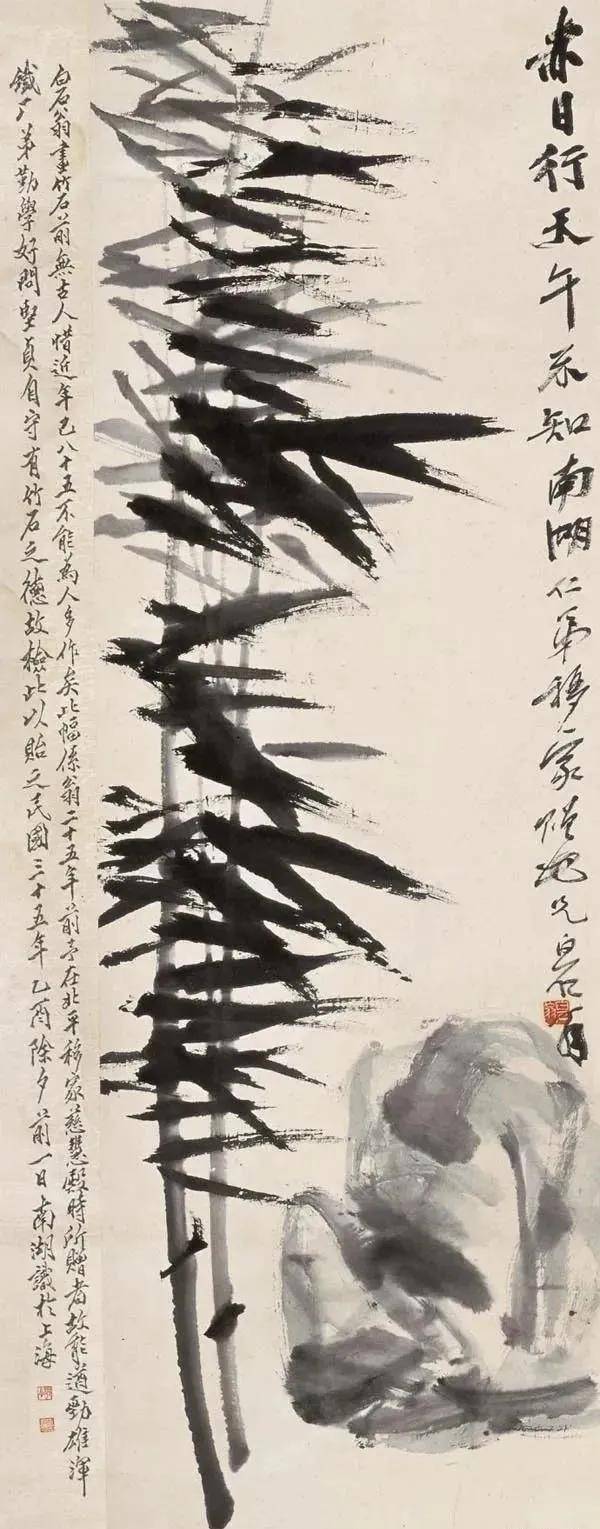 赤日行天午不知南湖仁弟移家赠此兄白石
白石翁畫竹石前無古人惜近年已八十五不能為人多作矣此幅係翁二十五年前予在北平移家慈慧殿時所贈者故能遒勁雄渾
鐵厂弟勤學好問堅貞自守有竹石之德故檢此以貽之民國三十五年乙酉除夕前一日南湖識於上海